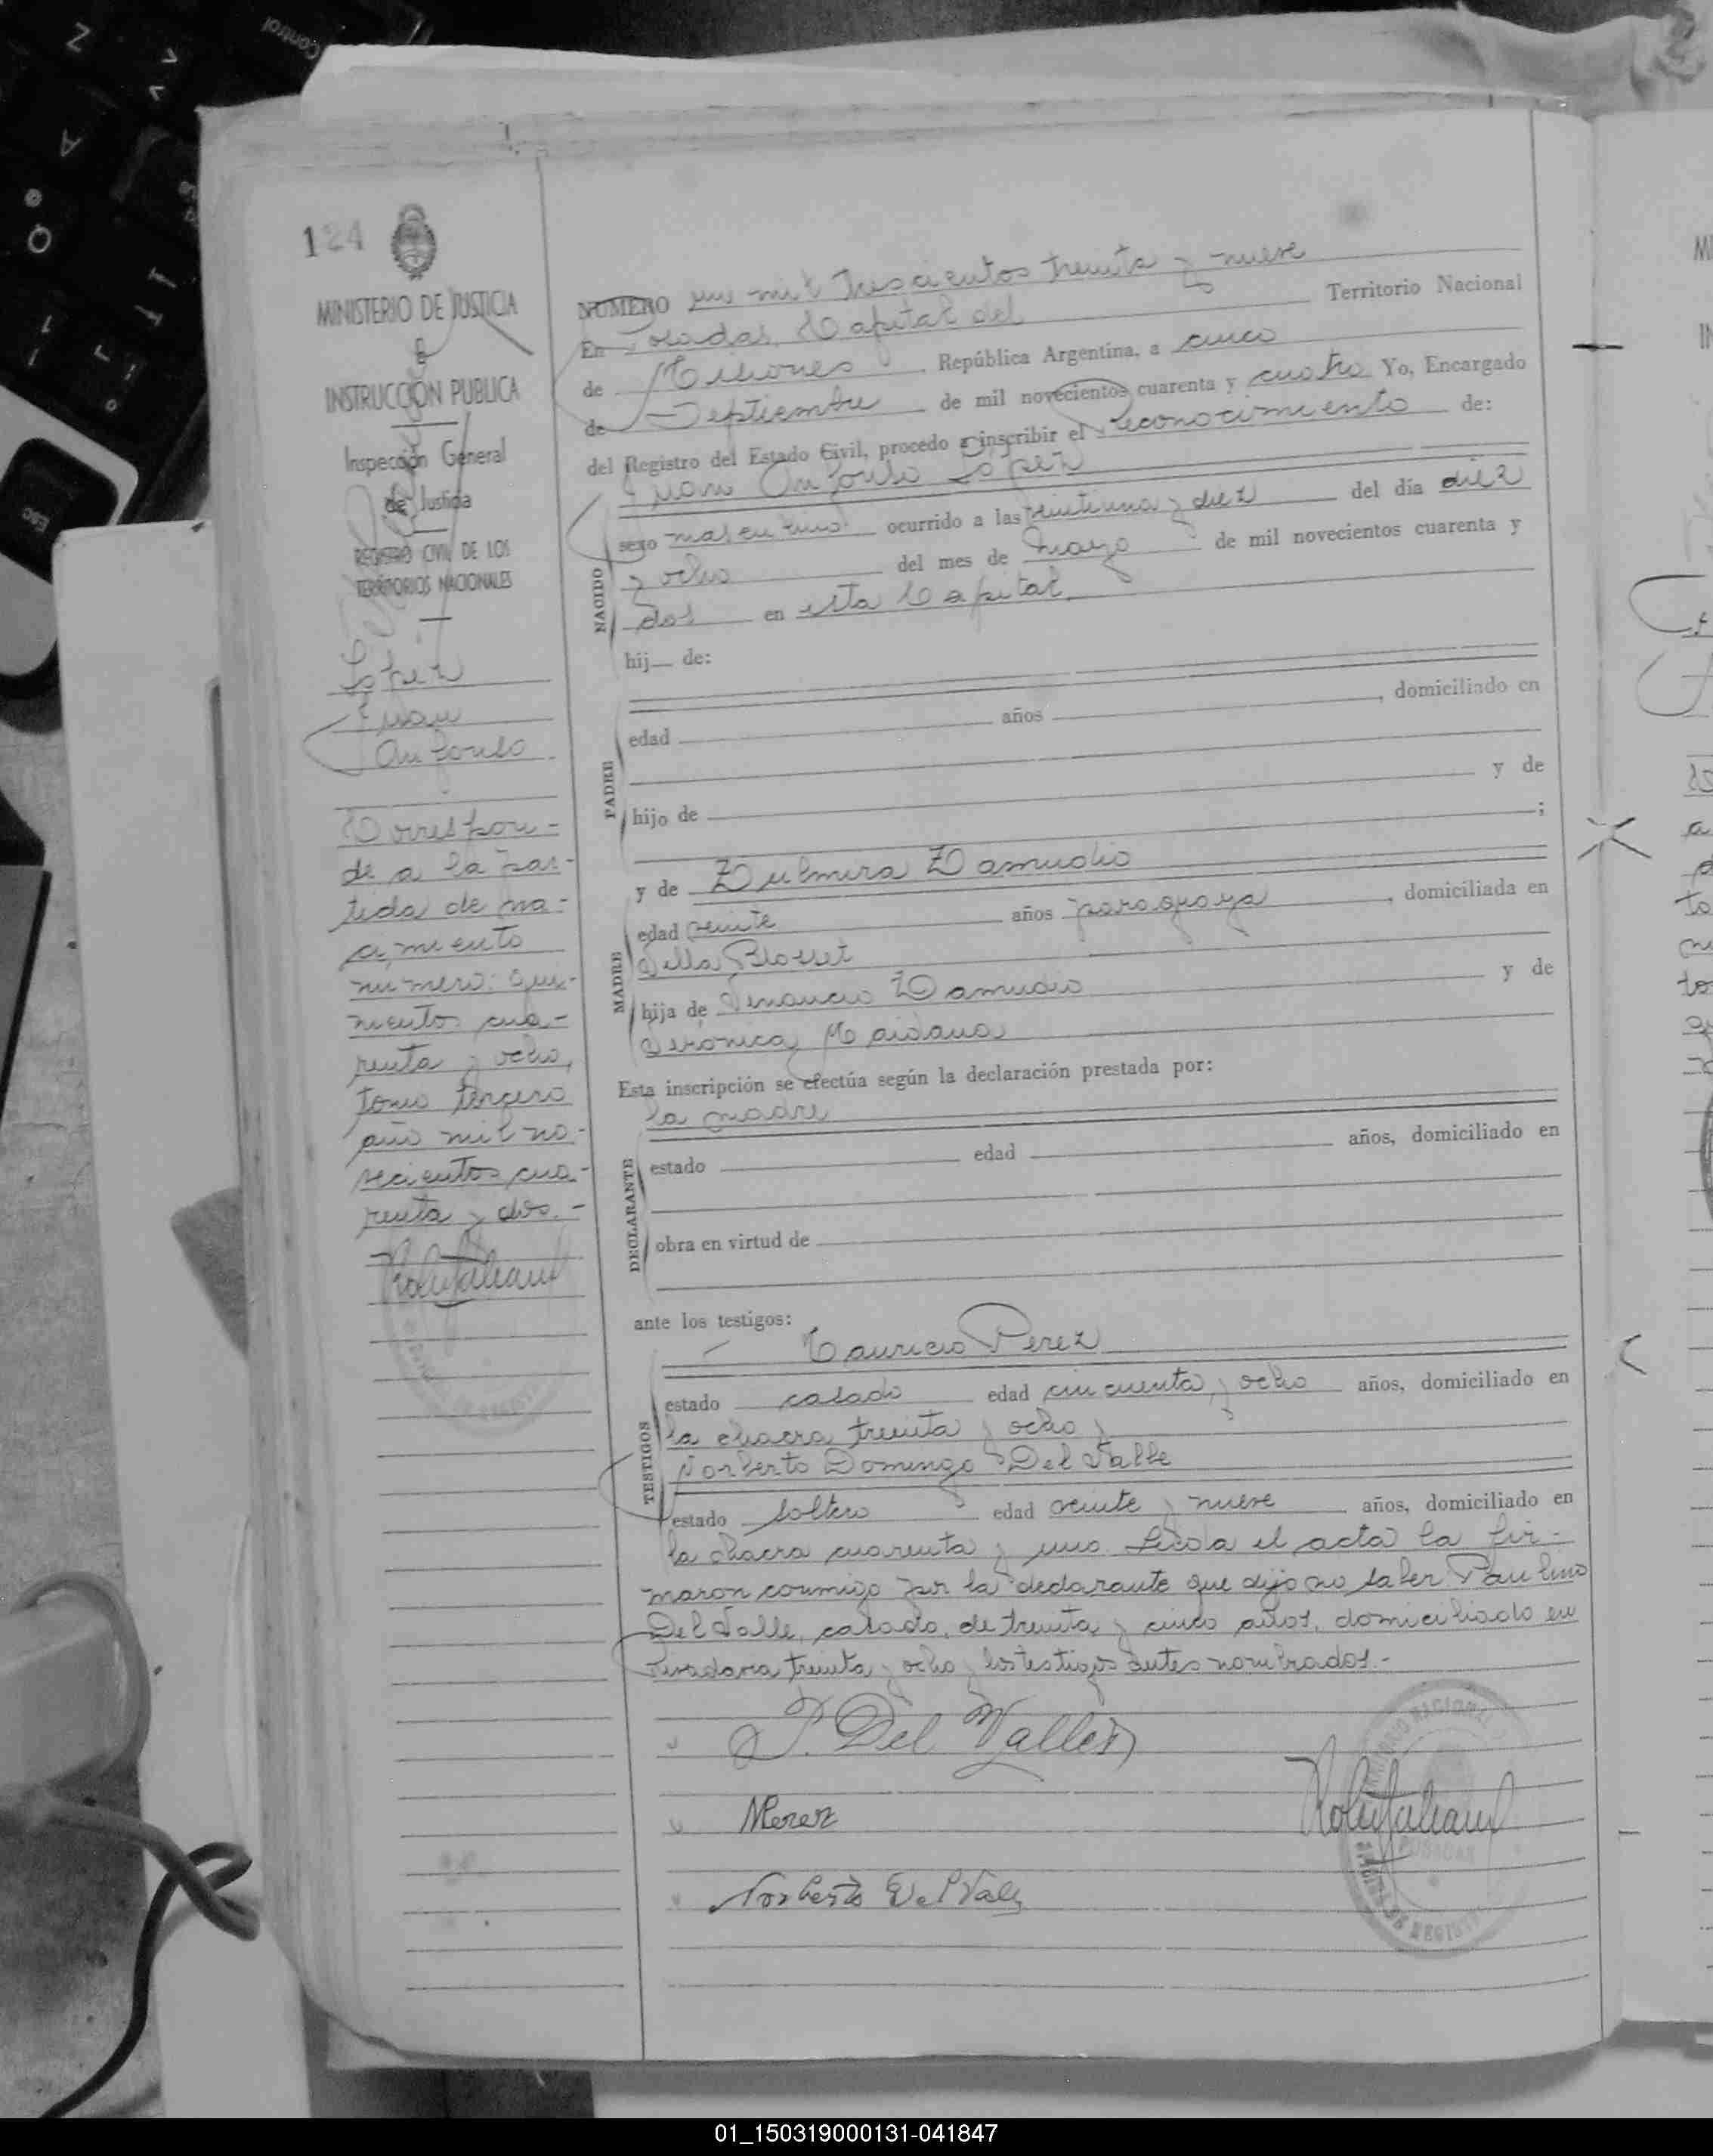 Control
Esc
124
MINISTERIO DE JUSTICIA
E
INSTRUCCIÓN PUBLICA
Inspección General
de Justicia
REGISTRO CIVIL DE LOS
TERRITORIOS NACIONALES
López
Juan
Antonio
Correspon-
de a la par-
tida de na-
cimiento
numero: qui-
nientos cua-
renta y ocho,
tomo tercero
año mil no-
vecientos cua-
renta y dos.-
NUMERO un mil trescientos treinta y nueve
En Posadas, Capital del Territorio Nacional
de Misiones, República Argentina, a cinco
de Septiembre de mil novecientos cuarenta y cuatro Yo, Encargado
del Registro del Estado Civil, procedo a inscribir el reconocimiento de:
Juan Antonio López
sexo masculino ocurrido a las veintiuna y diez del día diez
y ocho del mes de mayo de mil novecientos cuarenta y
dos en esta Capital
NACIDO
hij de:
edad años , domiciliado en
hijo de y de
;
PADRE
y de Zulmira Zamudio
edad veinte años paraguaya, domiciliada en
Villa Blosset
hija de Venancio Zamudio y de
Verónica Maidana
MADRE
Esta inscripción se efectúa según la declaración prestada por:
la madre
estado edad años, domiciliado en
obra en virtud de
DECLARANTE
ante los testigos:
Mauricio Perez
estado casado edad cincuenta y ocho años, domiciliado en
la chacra treinta y ocho y
Norberto Domingo Del Valle
estado soltero edad veinte y nueve años, domiciliado en
TESTIGOS
la chacra cuarenta y uno. Leída el acta la fir-
maron conmigo por la declarante que dijo no saber Paulino
Del Valle, casado, de treinta y cinco años, domiciliado en
Rivadavia treinta y ocho y los testigos antes nombrados.-
P. Del Valle
MPerez
Norberto Del Valle
TERRITORIO NACIONAL
POSADAS
01_150319000131-041847